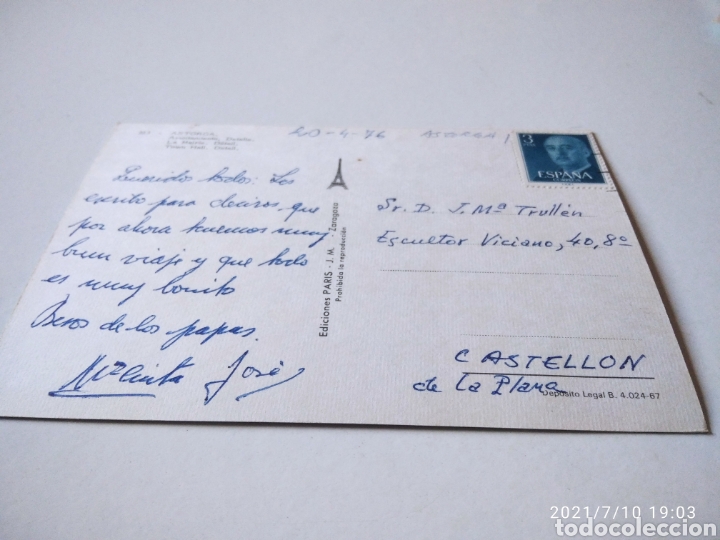 ASTORGA
20-4-76 ASTORGA
La Mairie. Détail.
Town Hall. Detail.
3
ESPAÑA
Queridos todos: Los
escribo para deciros que
por ahora tenemos muy
buen viaje y que todo
es muy bonito
Besos de los papas.
Mª Cinta José
Ediciones PARIS - J. M. - Zaragoza
Prohibida la reproducción
Sr. D. J. Mª Trullén
Escultor Viciano, 40, 8º
CASTELLON
de la Plana
Depósito Legal B. 4.024-67
2021/7/10 19:03
todocoleccion